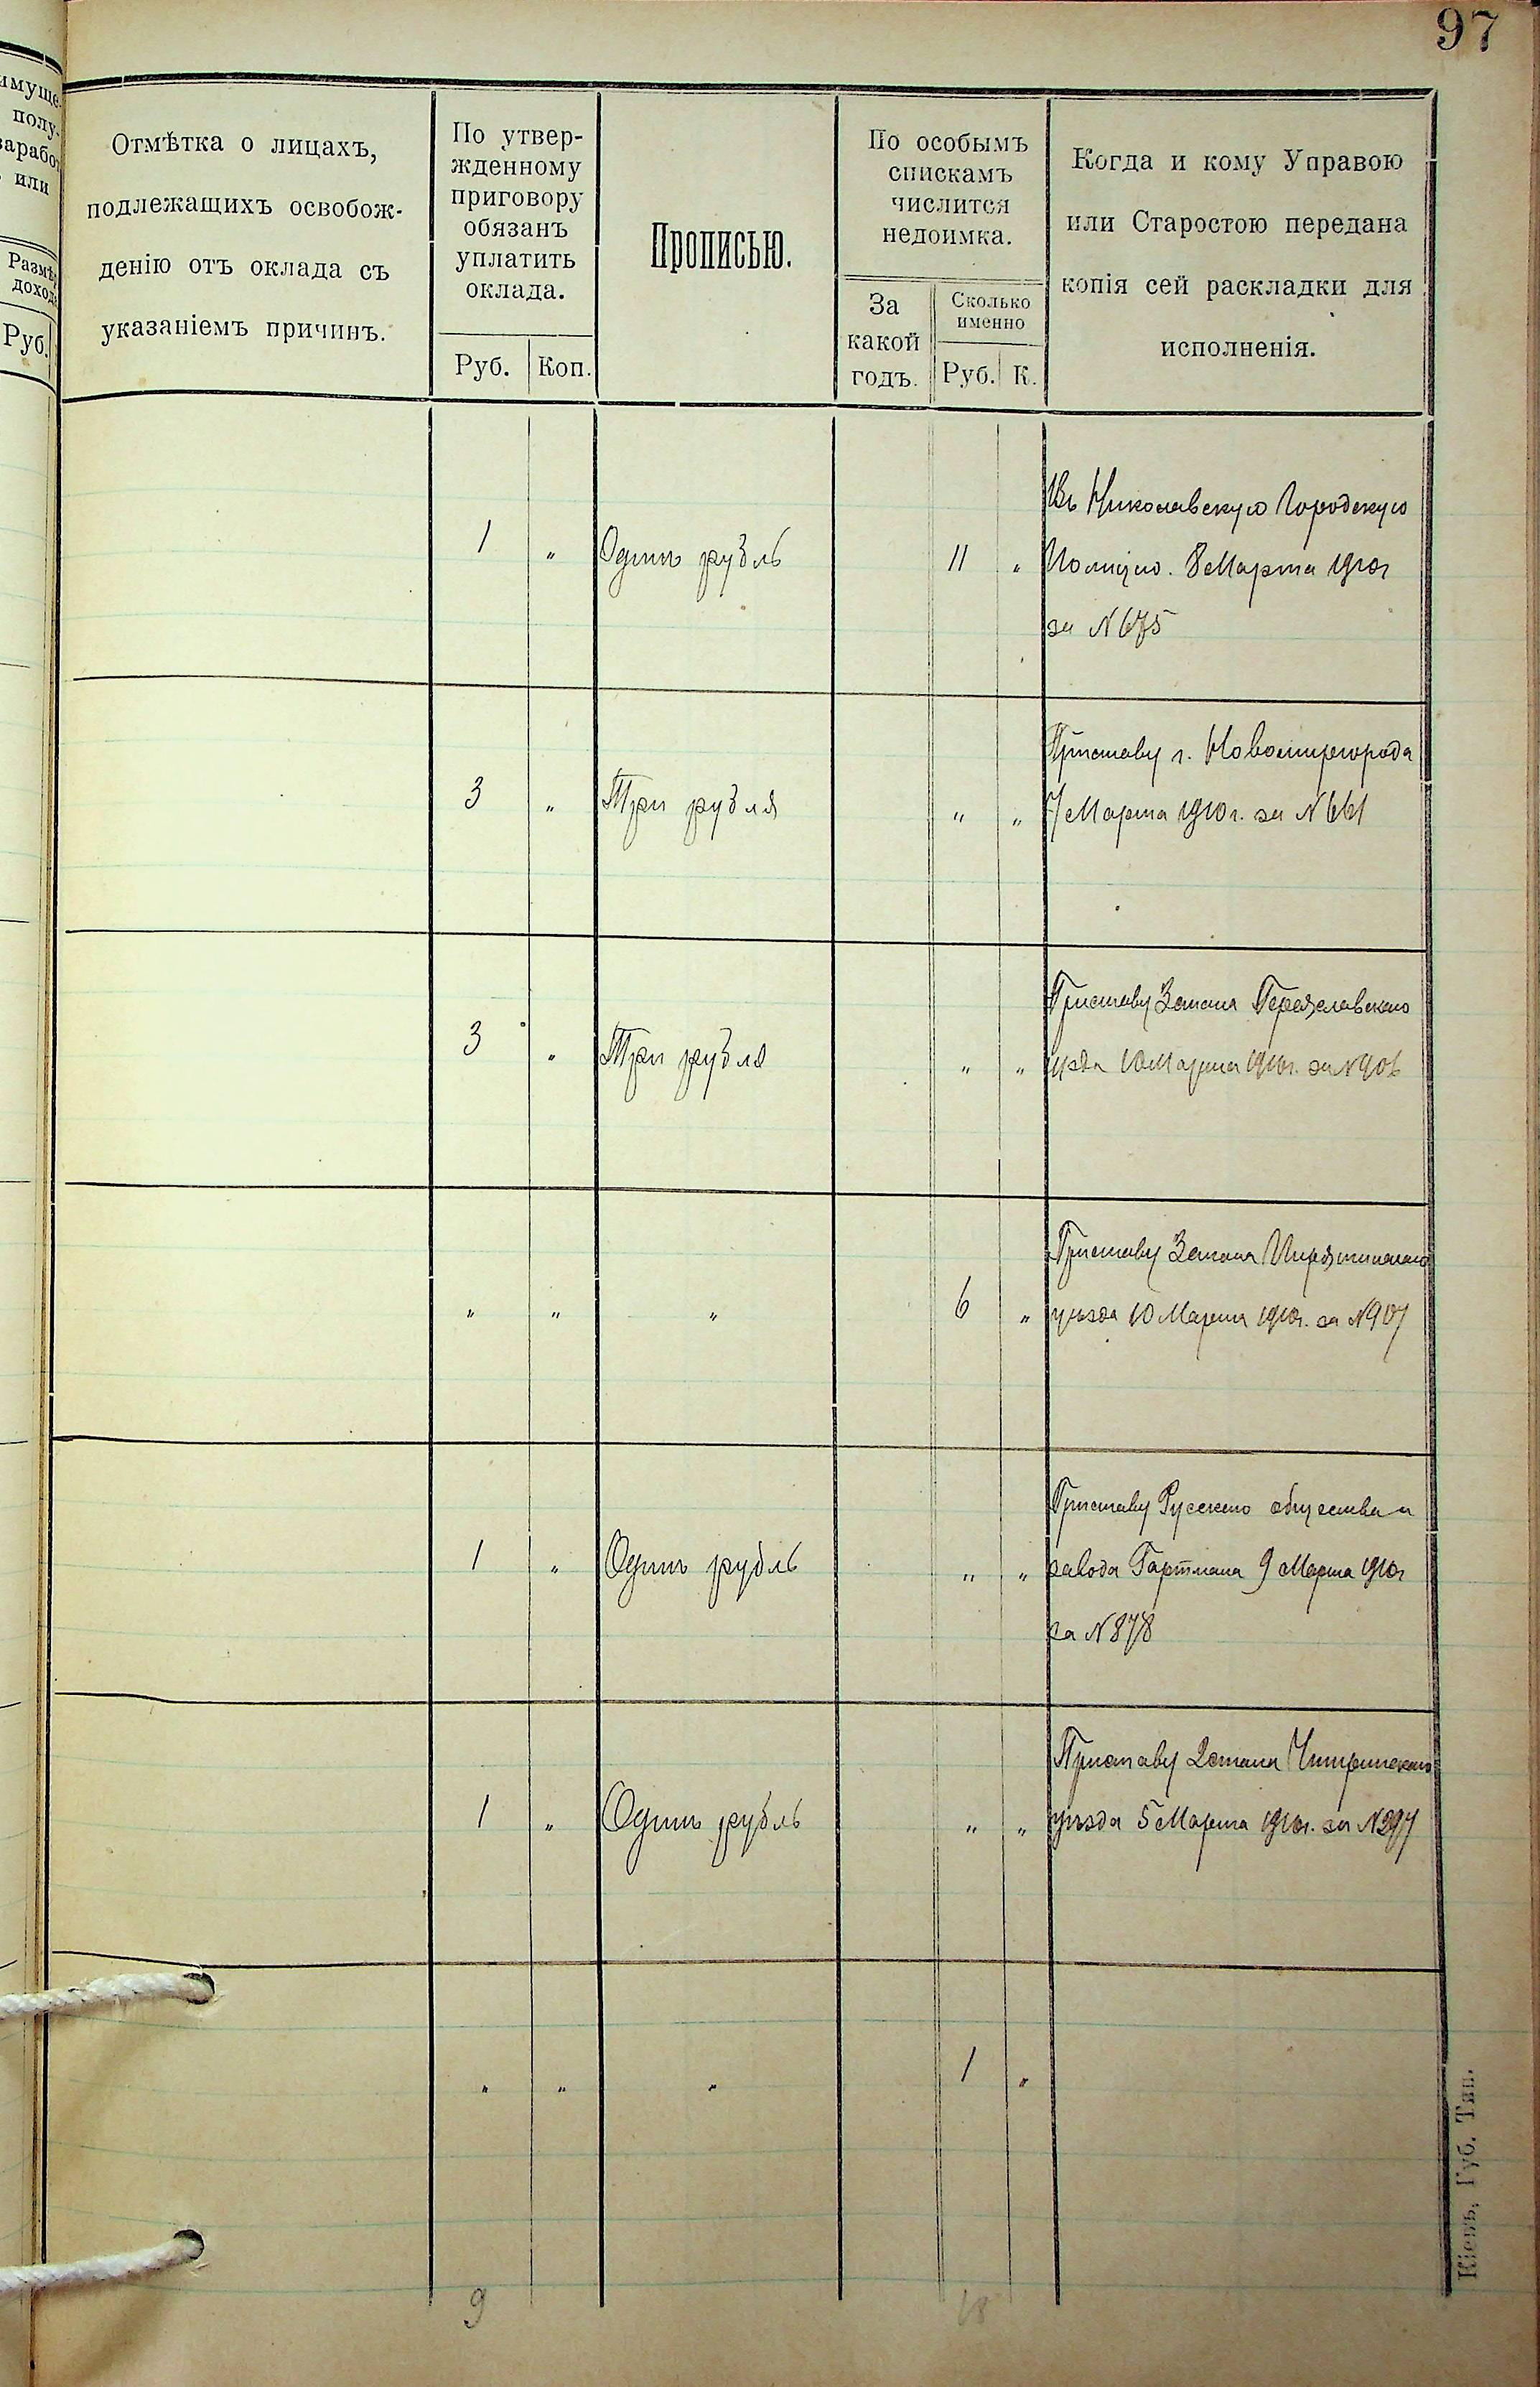 97
имуще-
полу-
заработ
или
Размѣ
дохода
Руб.
Отмѣтка о лицахъ,
подлежащихъ освобож-
денію отъ оклада съ
указаніемъ причинъ.
По утвер-
жденному
приговору
обязанъ
уплатить
оклада.
Руб. Коп.
Прописью.
По особымъ
спискамъ
числится
недоимка.
За
какой
годъ.
Сколько
именно
Руб. К.
Когда и кому Управою
или Старостою передана
копія сей раскладки для
исполненія.
Въ Николаевскую Городскую
1 " Одинъ рубль 11 " Полицію. 8 Марта 1910г
за N 675
Приставу г. Новомиргорода
3 " Три рубля " " 7 Марта 1910 г. за N 661
Приставу 3 стана Переяславскаго
3 " Три рубля " " уѣзда 10 Марта 1910г. за N 906
Приставу 3 стана Пирятинскаго
" " " 6 " уѣзда 10 Марта 1910г. за N 907
Приставу Русскаго общества и
1 " Одинъ рубль " " завода Гартмана 9 Марта 1910г
за N 878
Приставу 2 стана Чигринскаго
1 " Одинъ рубль " " уѣзда 5 Марта 1910г. за N 297
" " " 1 "
9 18
Кіевъ, Губ. Тип.